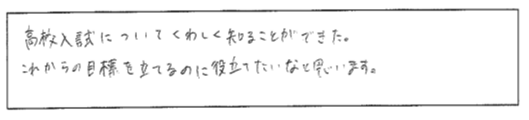 高校入試についてくわしく知ることができた。
これからの目標を立てるのに役立てたいなと思います。